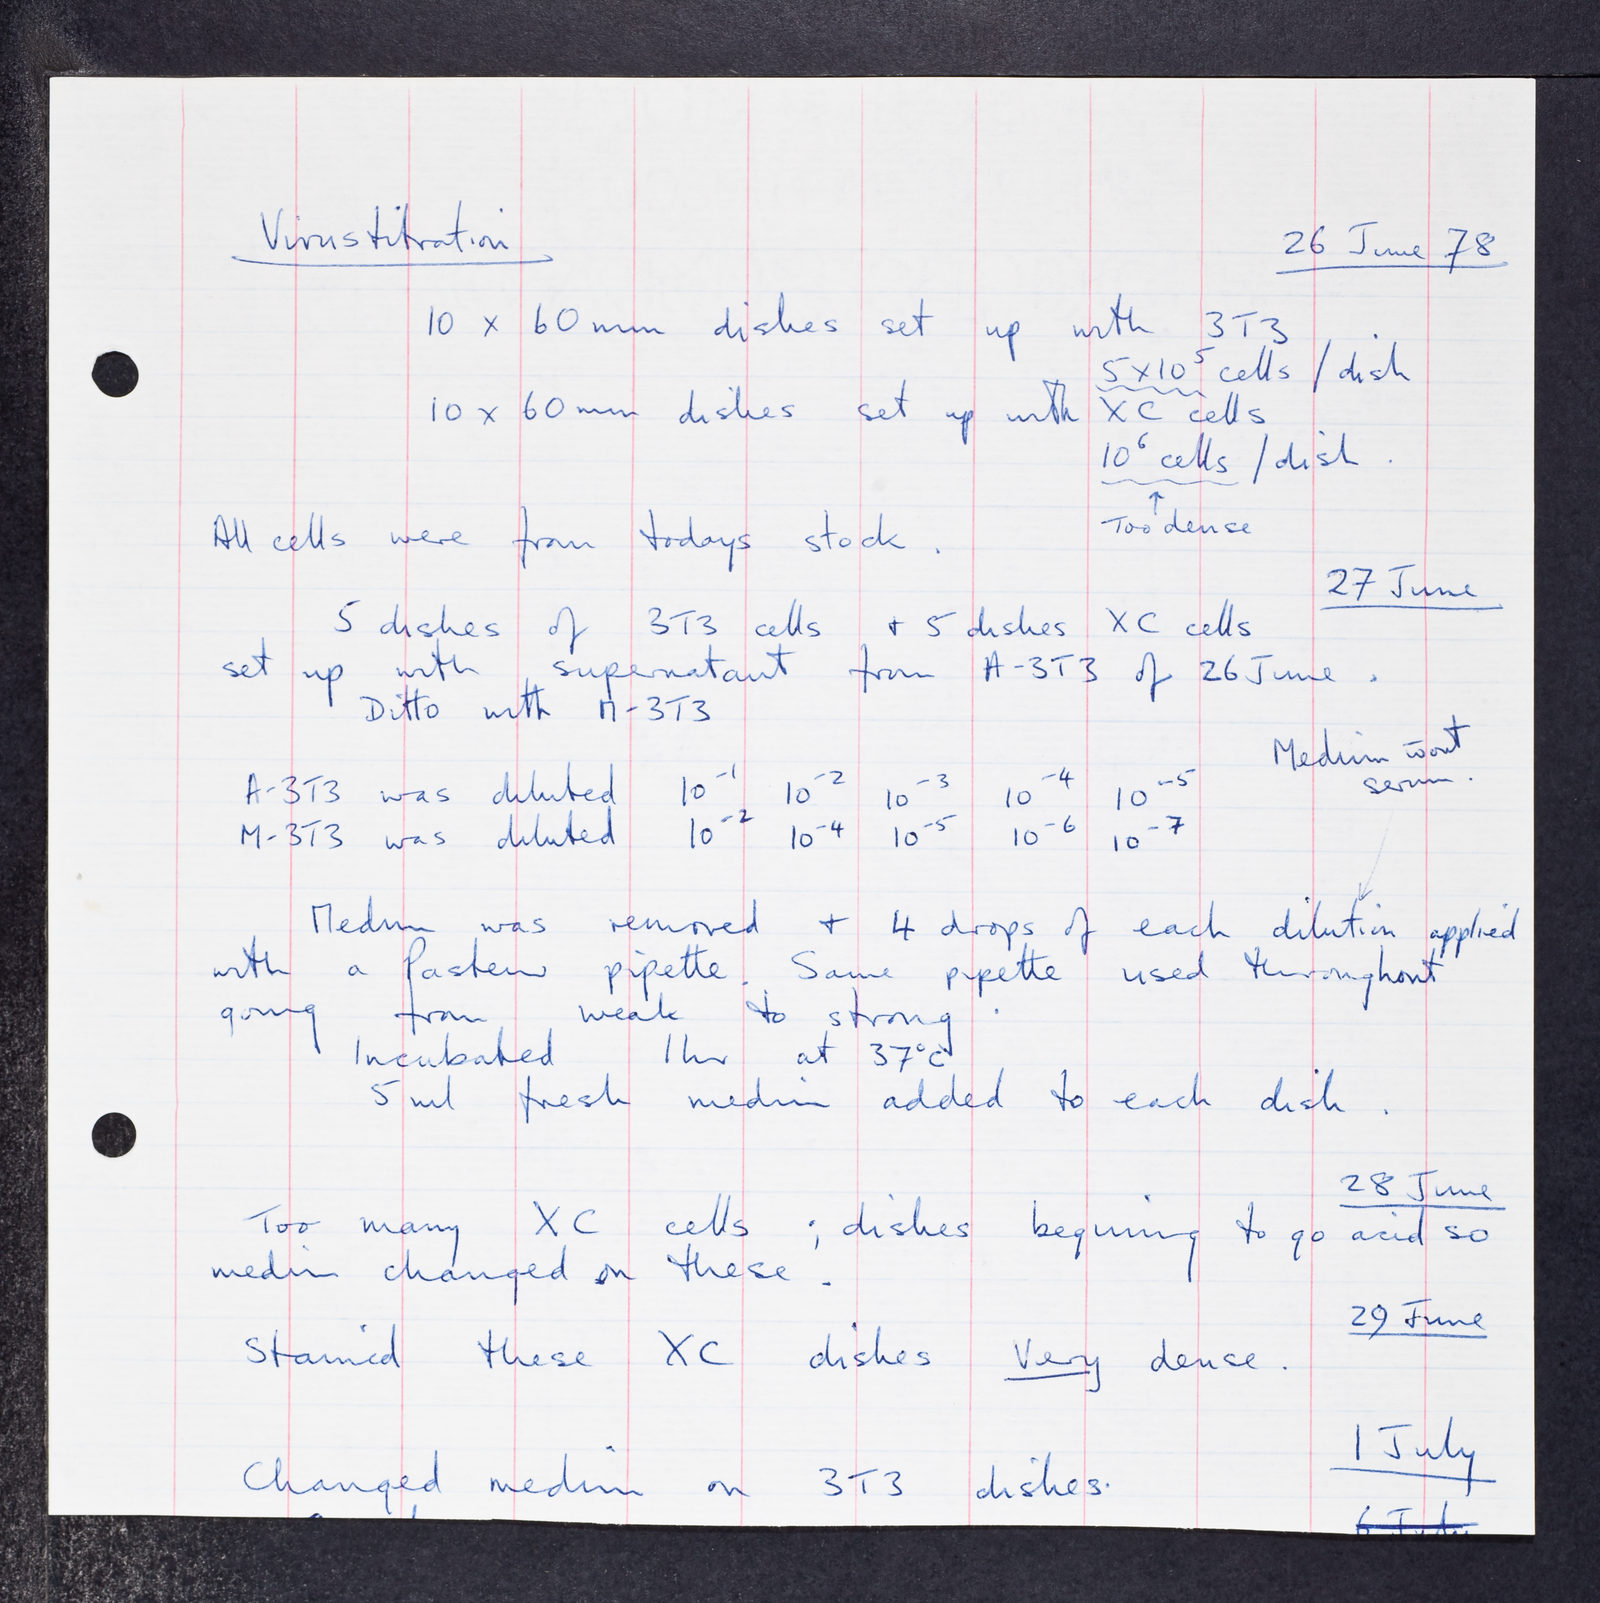 Virus titration
26 June 78
10 x 60mm dishes set up with 3T3
5x10⁵ cells / dish
10 x 60mm dishes set up with XC cells
10⁶ cells / dish .
↑
Too dense
All cells were from todays stock .
27 June
5 dishes of 3T3 cells + 5 dishes XC cells
set up with supernatant from A-3T3 of 26 June .
Ditto with M-3T3
Medium w̄out
serum .
A-3T3 was diluted 10⁻¹ 10⁻² 10⁻³ 10⁻⁴ 10⁻⁵
M-3T3 was diluted 10⁻² 10⁻⁴ 10⁻⁵ 10⁻⁶ 10⁻⁷
Medium was removed + 4 drops of each dilution applied
with a Pasteur pipette. Same pipette used throughout
going from weak to strong .
Incubated 1hr at 37°C
5 ml fresh medium added to each dish .
28 June
Too many XC cells ; dishes beginning to go acid so
medium changed on these .
29 June
Stained these XC dishes Very dense .
1 July
Changed medium on 3T3 dishes.
6 July